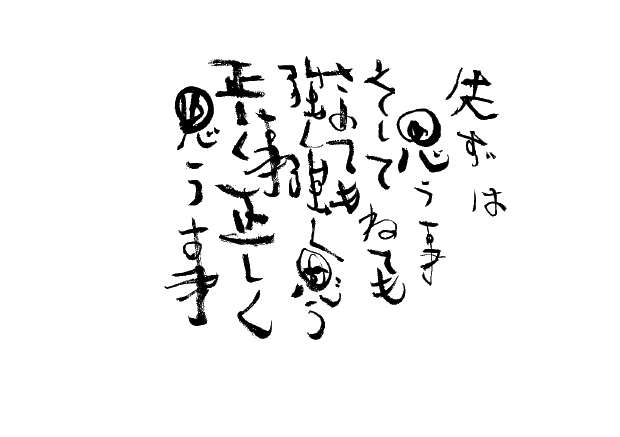 先ずは
思う事
そして ねても
さめても
強く強く思う
事
正しく正しく
思う事